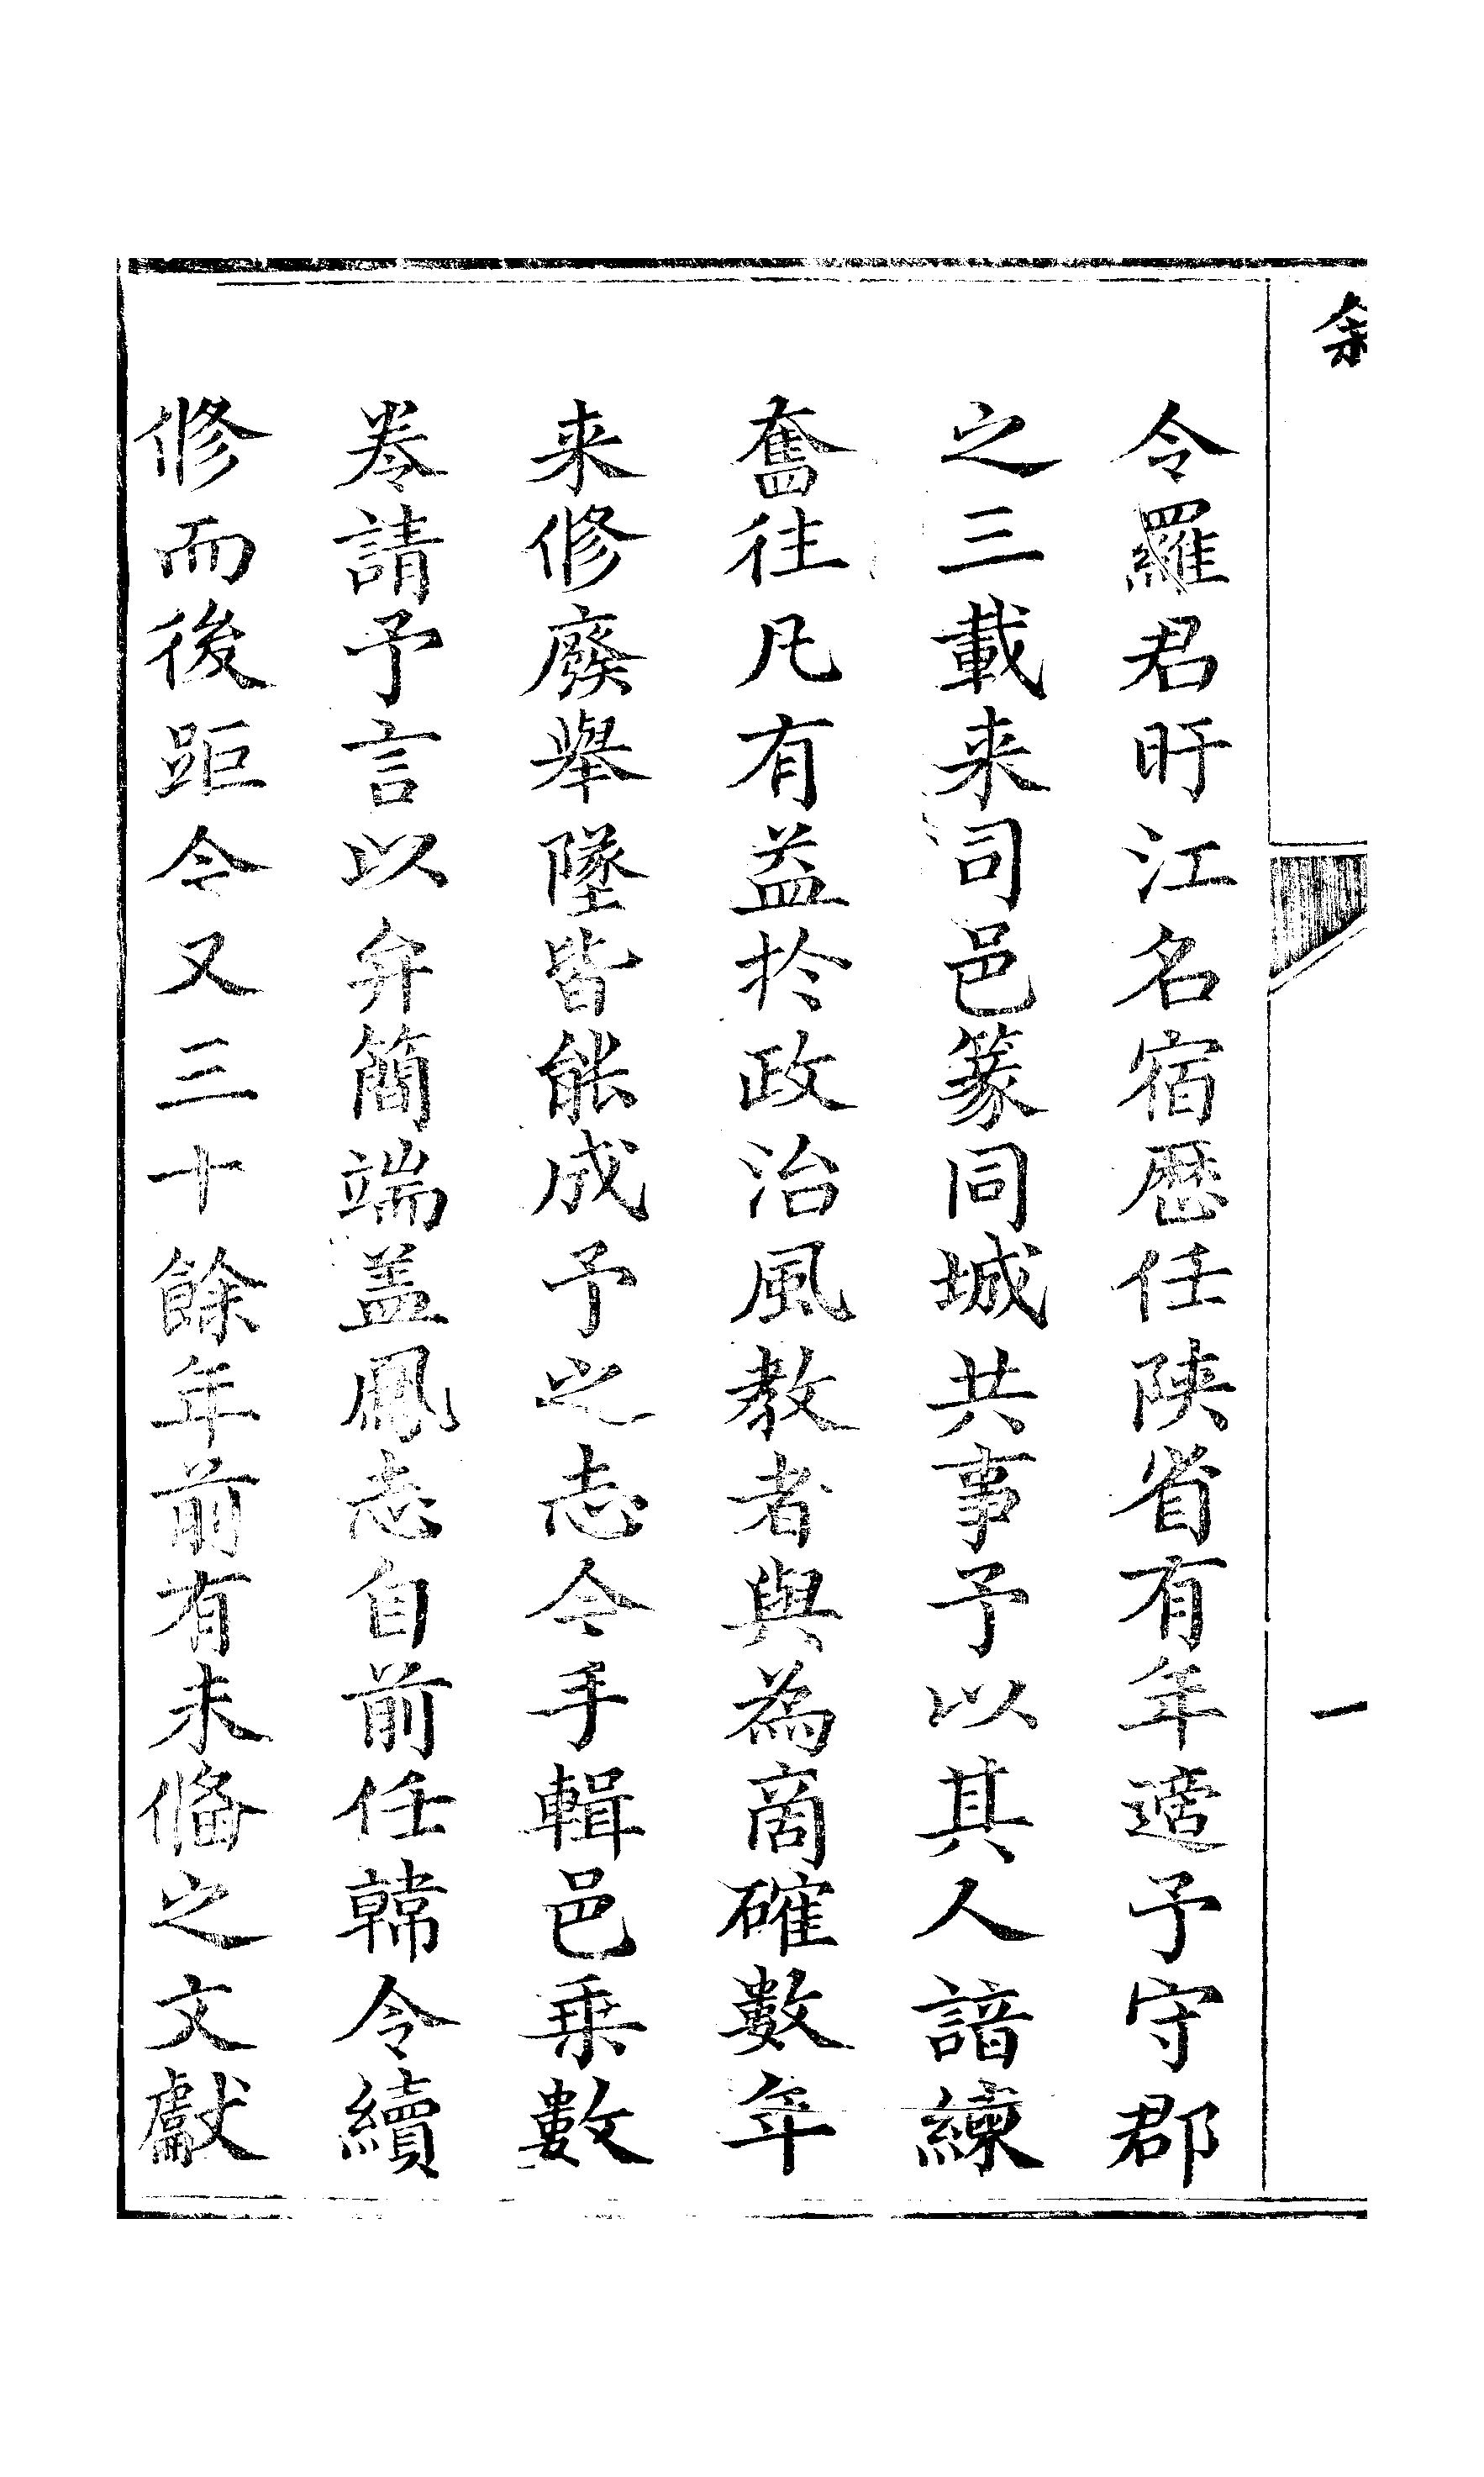 叙
一
令羅君盱江名宿歷任陝省有年適予守郡
之三載来司邑篆同城共事予以其人諳練
奮往凡有益於政治風教者與為商確數年
来修廢舉墜皆能成予之志今手輯邑乗數
卷請予言以弁簡端盖鳳志自前任韓令續
修而後距今又三十餘年前有未偹之文獻